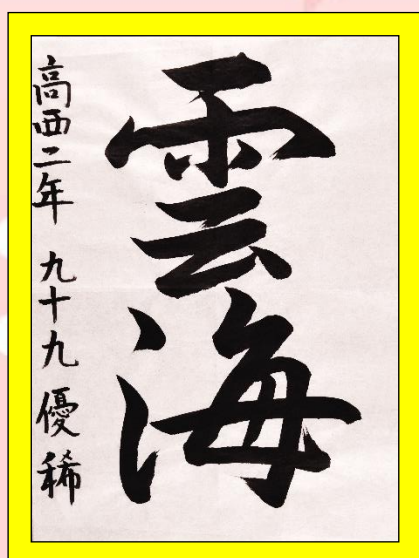 雲海
高西二年 九十九 優稀